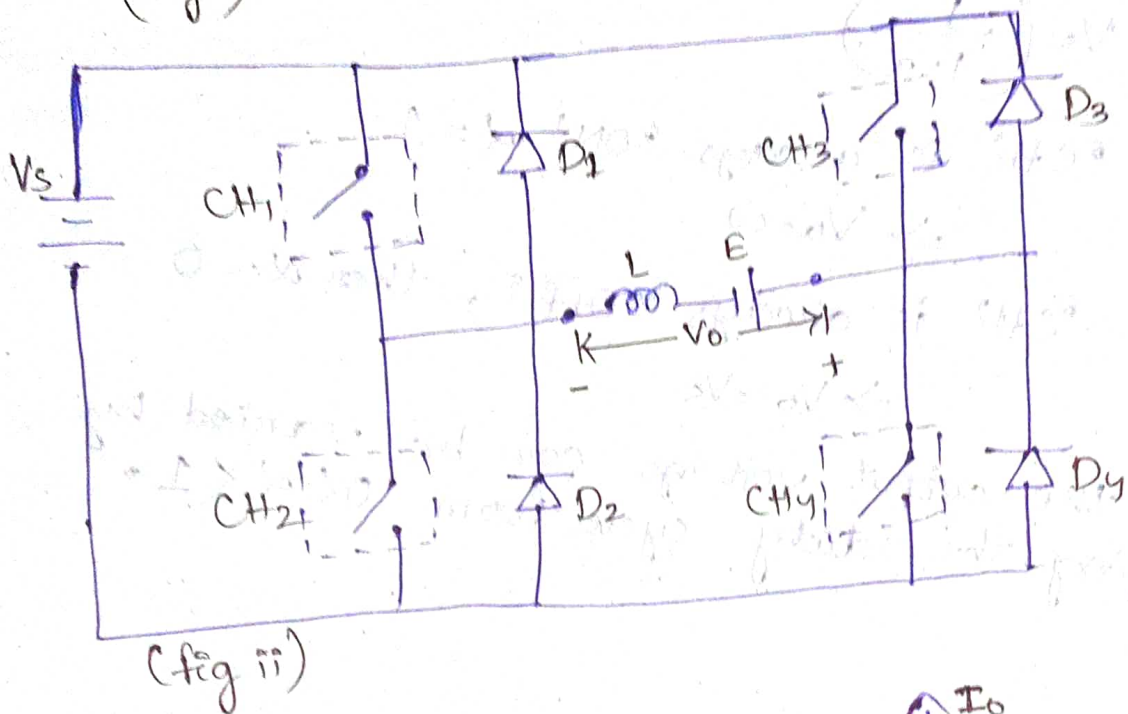 Vs
CH1
D1
CH3
D3
L
E
K
Vo
-
+
CH2
D2
CH4
D4
(fig ii)
Io